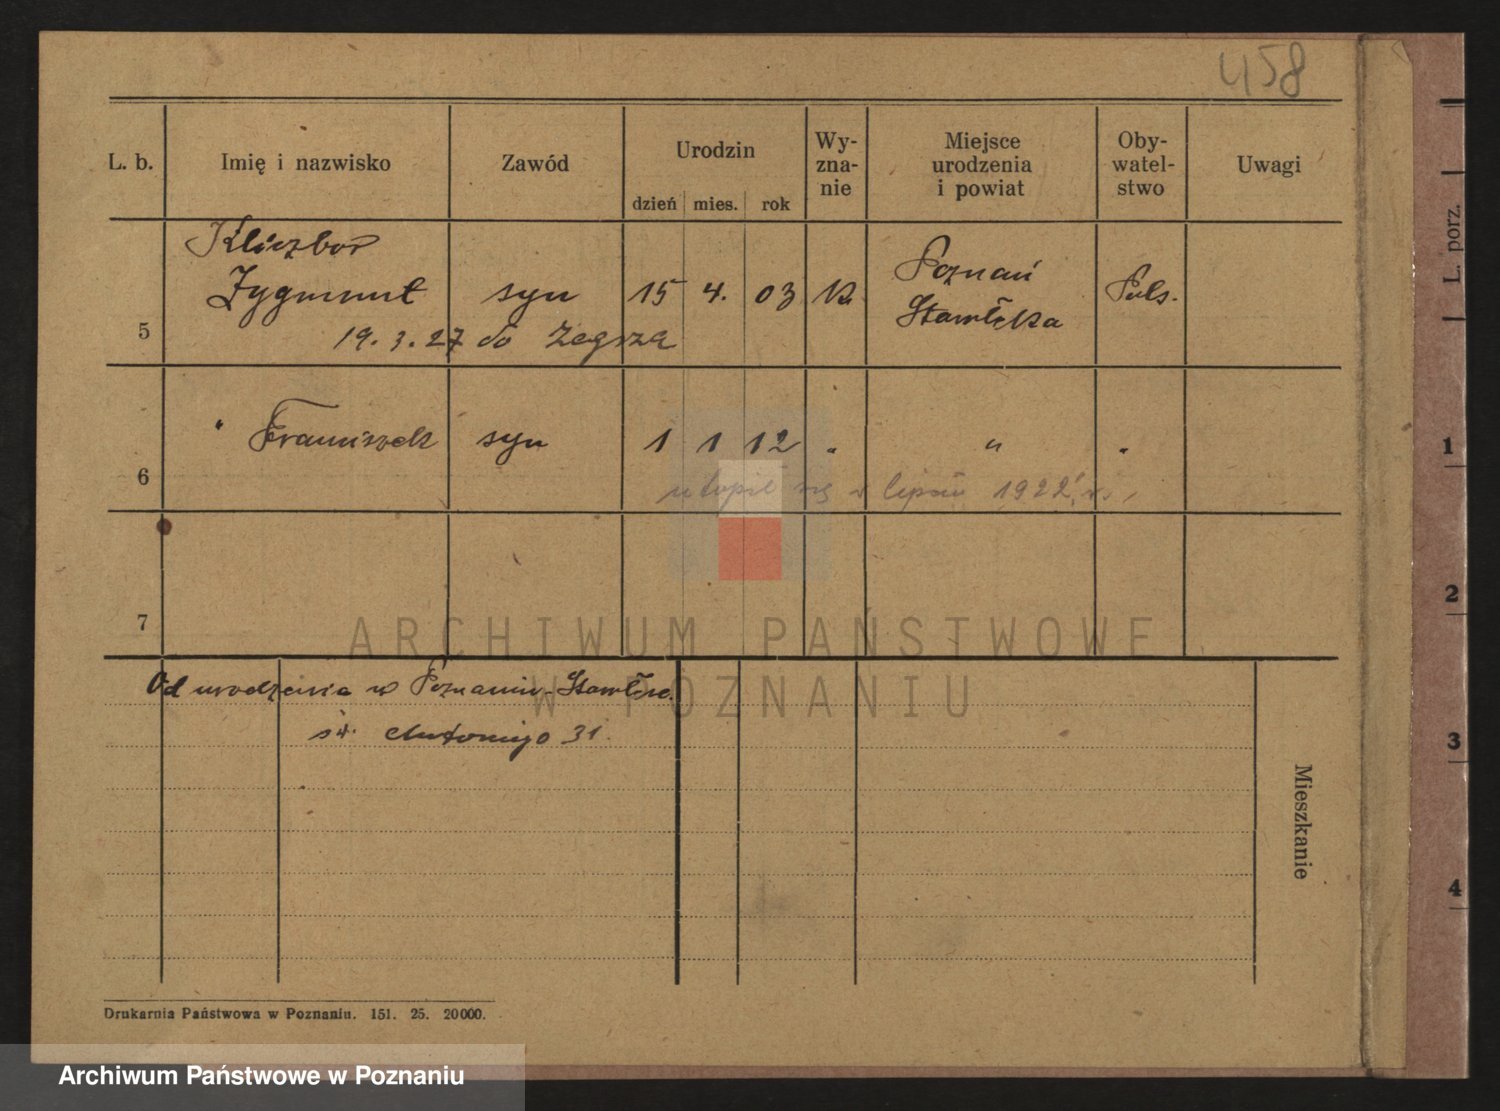 458
L. b. Imię i nazwisko Zawód Urodzin Wy-
zna-
nie Miejsce
urodzenia
i powiat Oby-
watel-
stwo Uwagi
dzień mies. rok
L. porz.
Kliczbor
Zygmunt syn 15 4. 03 k. Poznań
Starołęka Pols.
5 19. 3. 27 do Zegrza
" Franciszek syn 1 1 12 " " "
6 utopił się w lipcu 1922
7
Od urodzenia w Poznaniu-Starołęce
św. Antoniego 31.
Mieszkanie
1
2
3
4
Drukarnia Państwowa w Poznaniu. 151. 25. 20000.
ARCHIWUM PAŃSTWOWE
W POZNANIU
Archiwum Państwowe w Poznaniu